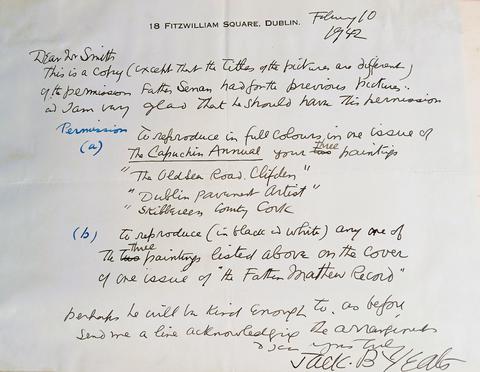 18 FITZWILLIAM SQUARE, DUBLIN.
February 10
1942
Dear Mr Smith
This is a copy (except that the titles of the pictures are different)
of the permission Father Senan had for the previous pictures.
and I am very glad that he should have this permission
Permission to reproduce in full colours, in one issue of
(a) The Capuchin Annual your two three paintings
"The Old Sea Road. Clifden"
"Dublin Pavement Artist"
"Skibbereen County Cork"
(b) to reproduce (in black & white) any one of
the two three paintings listed above on the cover
of one issue of "the Father Mathew Record"
perhaps he will be kind enough to, as before
send me a line acknowledging the arrangement
yours truly
Jack. B Yeats